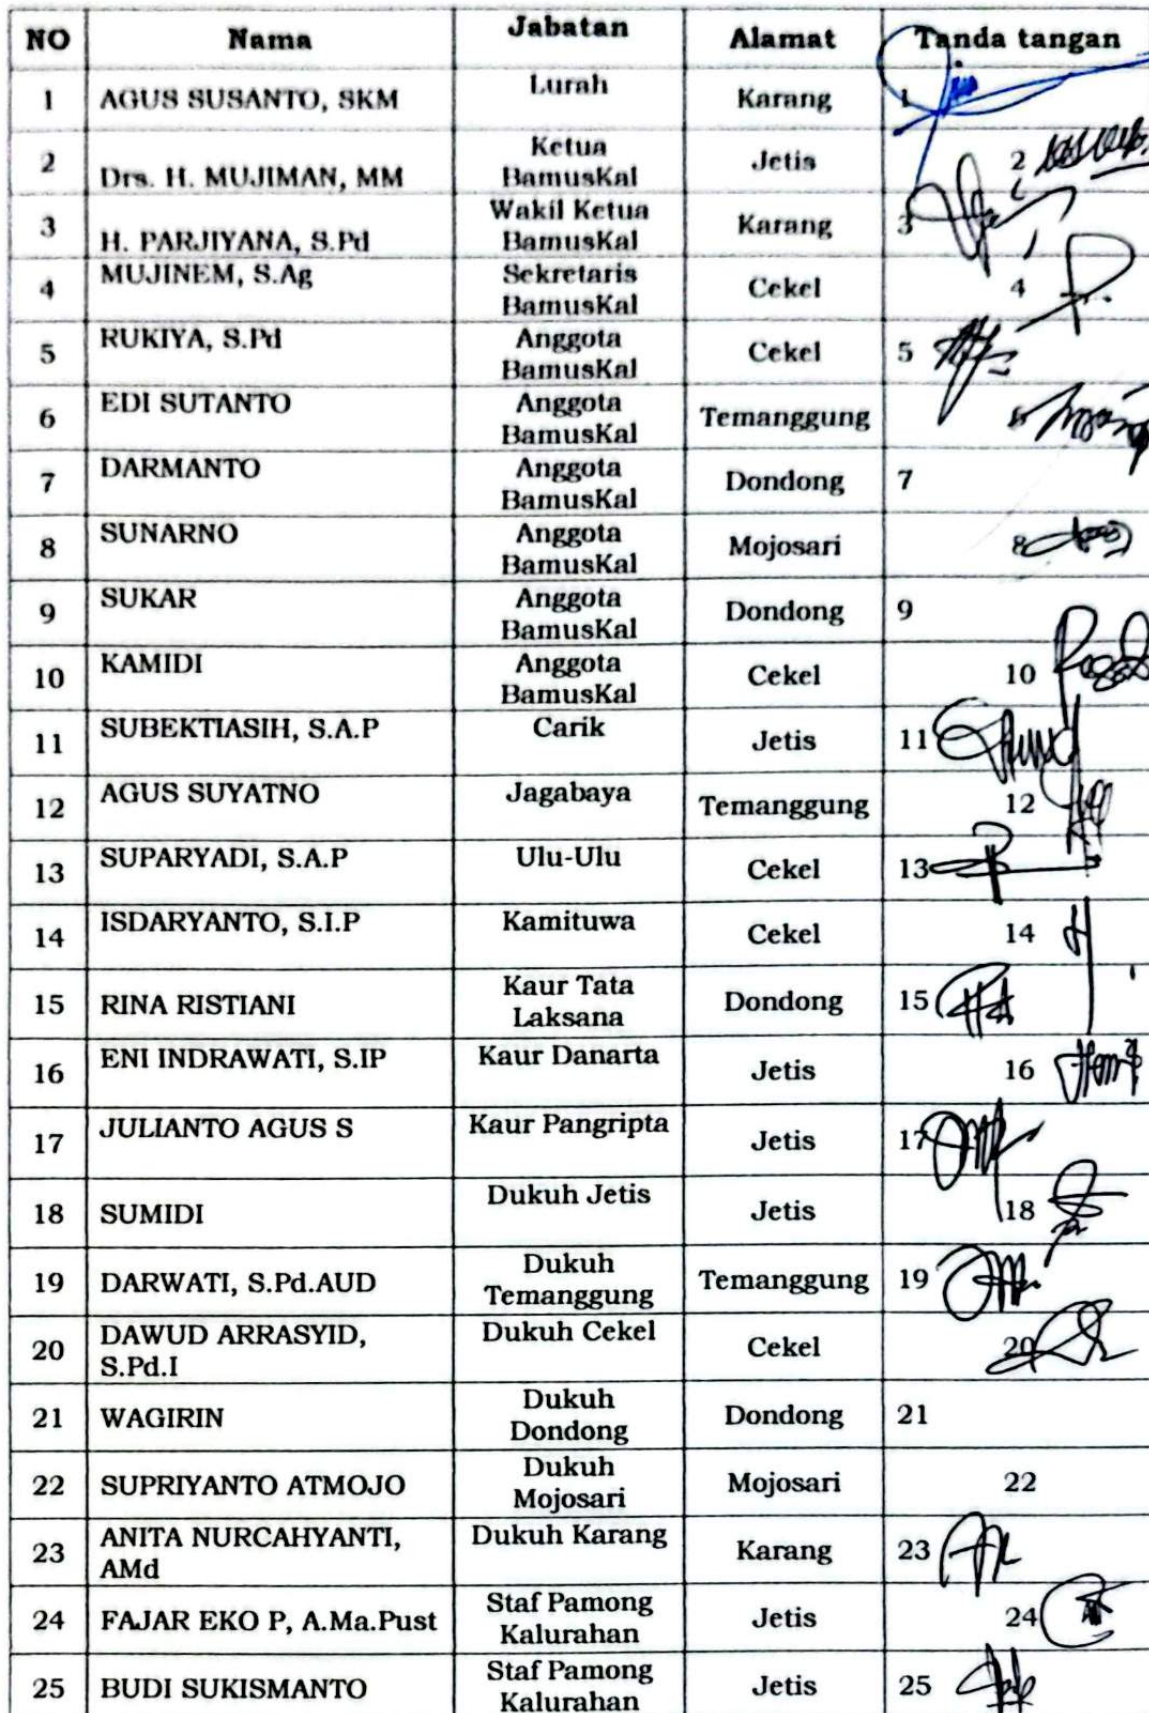 NO Nama Jabatan Alamat Tanda tangan
1 AGUS SUSANTO, SKM Lurah Karang 1
2 Drs. H. MUJIMAN, MM Ketua BamusKal Jetis 2
3 H. PARJIYANA, S.Pd Wakil Ketua BamusKal Karang 3
4 MUJINEM, S.Ag Sekretaris BamusKal Cekel 4
5 RUKIYA, S.Pd Anggota BamusKal Cekel 5
6 EDI SUTANTO Anggota BamusKal Temanggung 6
7 DARMANTO Anggota BamusKal Dondong 7
8 SUNARNO Anggota BamusKal Mojosari 8
9 SUKAR Anggota BamusKal Dondong 9
10 KAMIDI Anggota BamusKal Cekel 10
11 SUBEKTIASIH, S.A.P Carik Jetis 11
12 AGUS SUYATNO Jagabaya Temanggung 12
13 SUPARYADI, S.A.P Ulu-Ulu Cekel 13
14 ISDARYANTO, S.I.P Kamituwa Cekel 14
15 RINA RISTIANI Kaur Tata Laksana Dondong 15
16 ENI INDRAWATI, S.IP Kaur Danarta Jetis 16
17 JULIANTO AGUS S Kaur Pangripta Jetis 17
18 SUMIDI Dukuh Jetis Jetis 18
19 DARWATI, S.Pd.AUD Dukuh Temanggung Temanggung 19
20 DAWUD ARRASYID, S.Pd.I Dukuh Cekel Cekel 20
21 WAGIRIN Dukuh Dondong Dondong 21
22 SUPRIYANTO ATMOJO Dukuh Mojosari Mojosari 22
23 ANITA NURCAHYANTI, AMd Dukuh Karang Karang 23
24 FAJAR EKO P, A.Ma.Pust Staf Pamong Kalurahan Jetis 24
25 BUDI SUKISMANTO Staf Pamong Kalurahan Jetis 25